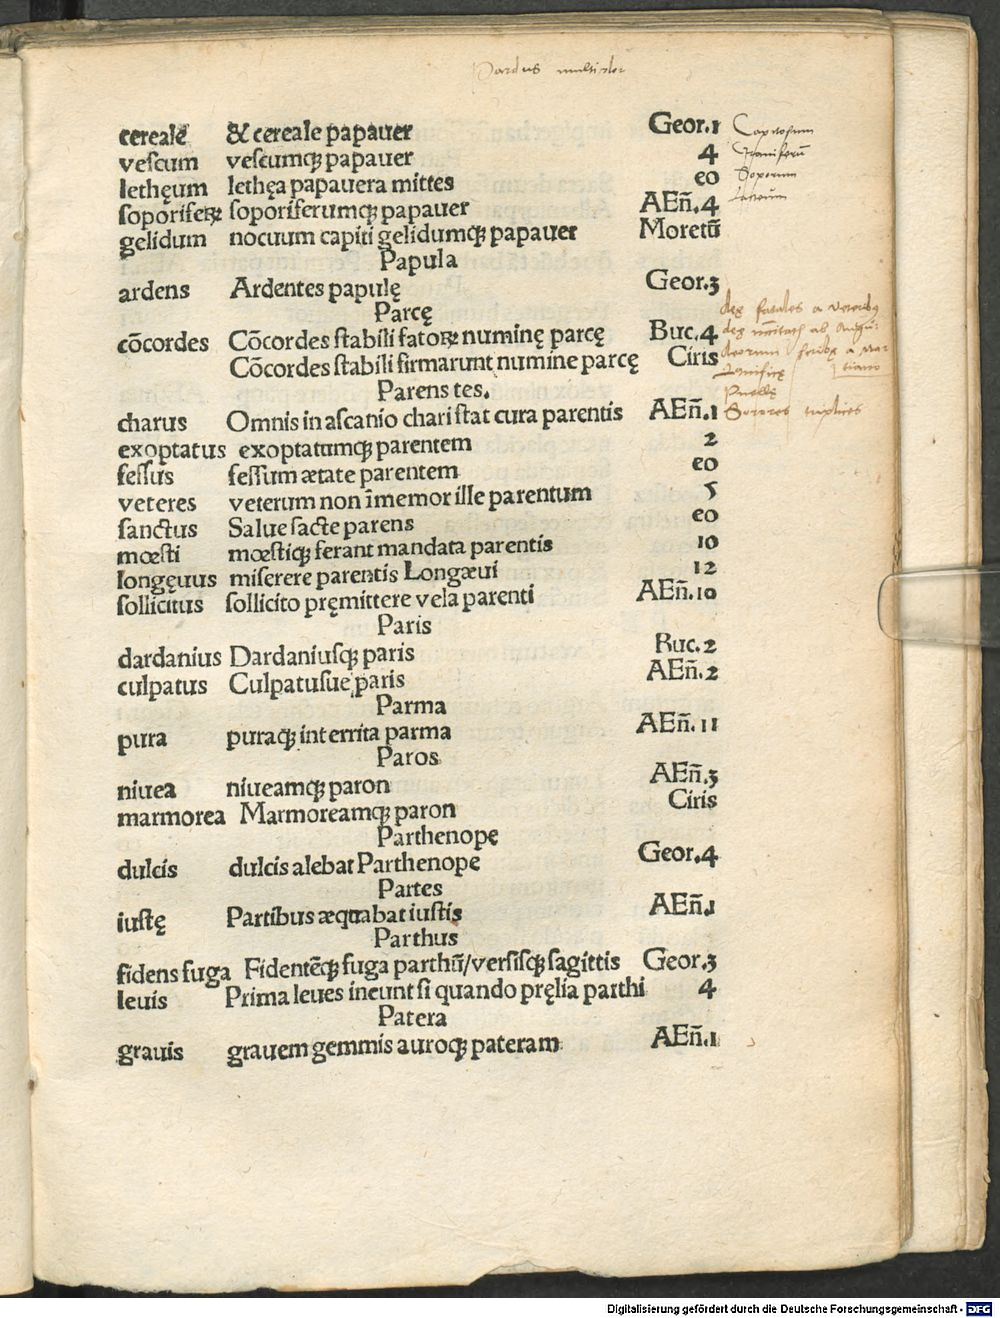 Pardus multicolor
cereale & cereale papauer Geor.1
vescum vescumqꝫ papauer 4
lethęum lethęa papauera mittes eo
soporiferꝫ soporiferumqꝫ papauer AEn̄.4
gelidum nocuum capiti gelidumqꝫ papauer Moretū
Papula
ardens Ardentes papulę Geor.3
Parcę
cōcordes Cōcordes stabili fatoꝝ numinę parcę Buc.4
Cōcordes stabili firmarunt numine parcę Ciris
Parens tes.
charus Omnis in ascanio chari stat cura parentis AEn̄.1
exoptatus exoptatumqꝫ parentem 2
fessus fessum ætate parentem eo
veteres veterum non īmemor ille parentum 5
sanctus Salue sacte parens eo
mœsti mœstiqꝫ ferant mandata parentis 10
longęuus miserere parentis Longæui 12
sollicitus sollicito pręmittere vela parenti AEn̄.10
Paris
dardanius Dardaniusqꝫ paris Buc.2
culpatus Culpatusue paris AEn̄.2
Parma
pura puraqꝫ interrita parma AEn̄.11
Paros
niuea niueamqꝫ paron AEn̄.3
marmorea Marmoreamqꝫ paron Ciris
Parthenope
dulcis dulcis alebat Parthenope Geor.4
Partes
iustę Partibus æquabat iustis AEn̄.1
Parthus
fidens fuga Fidentēqꝫ fuga parthū/versisqꝫ sagittis Geor.3
leuis Prima leues ineunt si quando pręlia parthi 4
Patera
grauis grauem gemmis auroqꝫ pateram AEn̄.1
Soporum
Sorores triplices
Digitalisierung gefördert durch die Deutsche Forschungsgemeinschaft - DFG